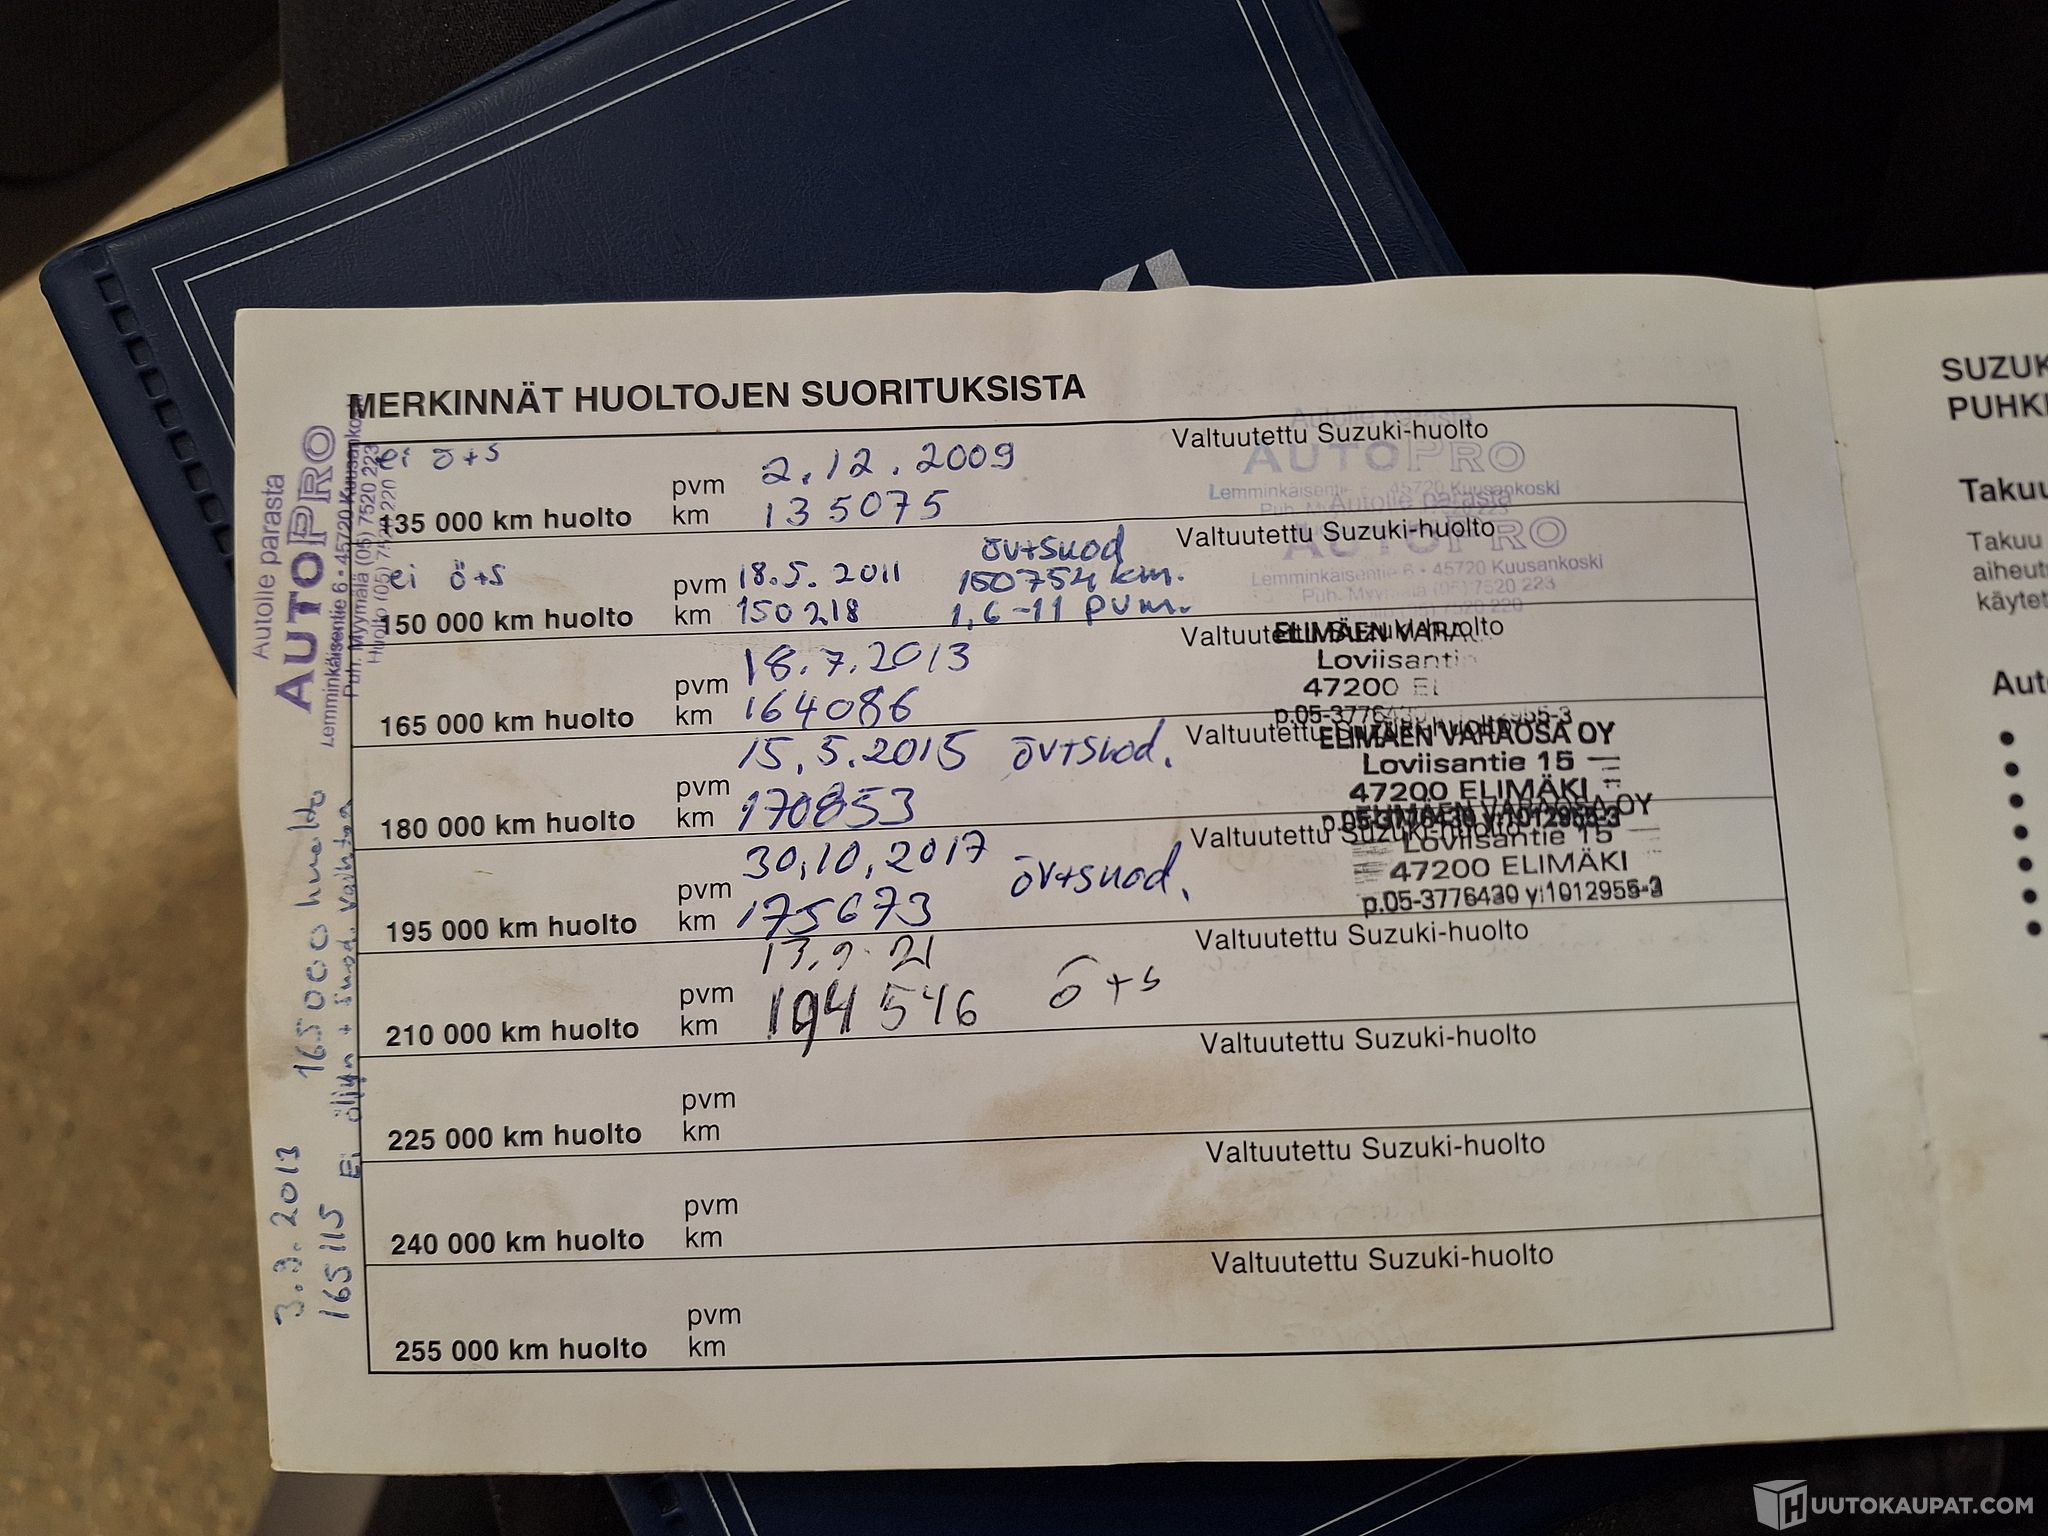 MERKINNÄT HUOLTOJEN SUORITUKSISTA
ei ö+s
135 000 km huolto
pvm 2.12.2009
km 135075
Valtuutettu Suzuki-huolto
Autolle parasta
AUTOPRO
Lemminkäisentie 45720 Kuusankoski
ei ö+s
150 000 km huolto
pvm 18.5.2011
km 150218
öv+suod
150754 km.
1,6-11 pvm.
Valtuutettu Suzuki-huolto
Autolle parasta
AUTOPRO
Lemminkäisentie 6 • 45720 Kuusankoski
Puh. Myymälä (05) 7520 223
165 000 km huolto
pvm 18.7.2013
km 164086
Valtuutettu Suzuki-huolto
ELIMÄEN
Loviisantie
47200
180 000 km huolto
pvm 15.5.2015
km 170853
öv+suod.
Valtuutettu Suzuki-huolto
ELIMÄEN VARAOSA OY
Loviisantie 15
47200 ELIMÄKI
p.05-3776430 y:1012955-3
195 000 km huolto
pvm 30.10.2017
km 175673
öv+suod.
Valtuutettu Suzuki-huolto
ELIMÄEN VARAOSA OY
Loviisantie 15
47200 ELIMÄKI
p.05-3776430 y:1012955-3
210 000 km huolto
pvm
km 194546
ö+s
Valtuutettu Suzuki-huolto
225 000 km huolto
pvm
km
Valtuutettu Suzuki-huolto
240 000 km huolto
pvm
km
Valtuutettu Suzuki-huolto
255 000 km huolto
pvm
km
Valtuutettu Suzuki-huolto
Autolle parasta
AUTOPRO
Lemminkäisentie 6 • 45720 Kuusankoski
Puh. Myymälä (05) 7520 223
Huolto (05) 7520 220
165000 huolto
165115
Ei öljyn + suod. vaihtoa
SUZUK
PUHK
Takuu
Takuu
aiheut
käytet
Aut
HUUTOKAUPAT.COM